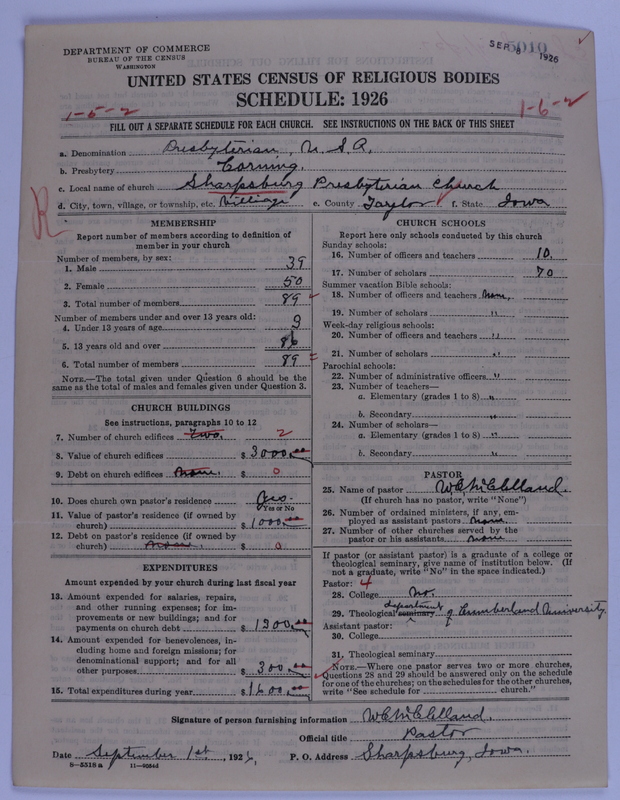 DEPARTMENT OF COMMERCE
BUREAU OF THE CENSUS
WASHINGTON
SEP 8 1926
UNITED STATES CENSUS OF RELIGIOUS BODIES
SCHEDULE: 1926
1-5-2
1-6-2
FILL OUT A SEPARATE SCHEDULE FOR EACH CHURCH. SEE INSTRUCTIONS ON THE BACK OF THIS SHEET
a. Denomination Presbyterian, U.S.A.
b. Presbytery Corning.
c. Local name of church Sharpsburg Presbyterian Church
d. City, town, village, or township, etc. Village e. County Taylor f. State Iowa
R
MEMBERSHIP
Report number of members according to definition of
member in your church
Number of members, by sex:
1. Male 39
2. Female 50
3. Total number of members 89
Number of members under and over 13 years old:
4. Under 13 years of age 3
5. 13 years old and over 86
6. Total number of members 89
NOTE.—The total given under Question 6 should be the
same as the total of males and females given under Question 3.
CHURCH BUILDINGS
See instructions, paragraphs 10 to 12
7. Number of church edifices Two. 2
8. Value of church edifices $ 3000.00
9. Debt on church edifices None. $ 0
10. Does church own pastor's residence Yes.
Yes or No
11. Value of pastor's residence (if owned by
church) $ 1000.00
12. Debt on pastor's residence (if owned by
church) None. $ 0
EXPENDITURES
Amount expended by your church during last fiscal year
13. Amount expended for salaries, repairs,
and other running expenses; for im-
provements or new buildings; and for
payments on church debt $ 1300.00
14. Amount expended for benevolences, in-
cluding home and foreign missions; for
denominational support; and for all
other purposes $ 300.00
15. Total expenditures during year $ 1600.00
CHURCH SCHOOLS
Report here only schools conducted by this church
Sunday schools:
16. Number of officers and teachers 10.
17. Number of scholars 70
Summer vacation Bible schools:
18. Number of officers and teachers None.
19. Number of scholars "
Week-day religious schools:
20. Number of officers and teachers "
21. Number of scholars "
Parochial schools:
22. Number of administrative officers "
23. Number of teachers—
a. Elementary (grades 1 to 8) "
b. Secondary "
24. Number of scholars—
a. Elementary (grades 1 to 8) "
b. Secondary "
PASTOR
25. Name of pastor W C McClelland.
(If church has no pastor, write "None")
26. Number of ordained ministers, if any, em-
ployed as assistant pastors None.
27. Number of other churches served by the
pastor or his assistants None.
If pastor (or assistant pastor) is a graduate of a college or
theological seminary, give name of institution below. (If
not a graduate, write "No" in the space indicated.)
Pastor: 4
28. College No.
department
29. Theological seminary of Cumberland University
Assistant pastor:
30. College
31. Theological seminary
NOTE.—Where one pastor serves two or more churches,
Questions 28 and 29 should be answered only on the schedule
for one of the churches; on the schedules for the other churches,
write "See schedule for church."
Signature of person furnishing information W C McClelland.
Official title Pastor
Date September 1st, 1926, P. O. Address Sharpsburg, Iowa.
8-5518 a